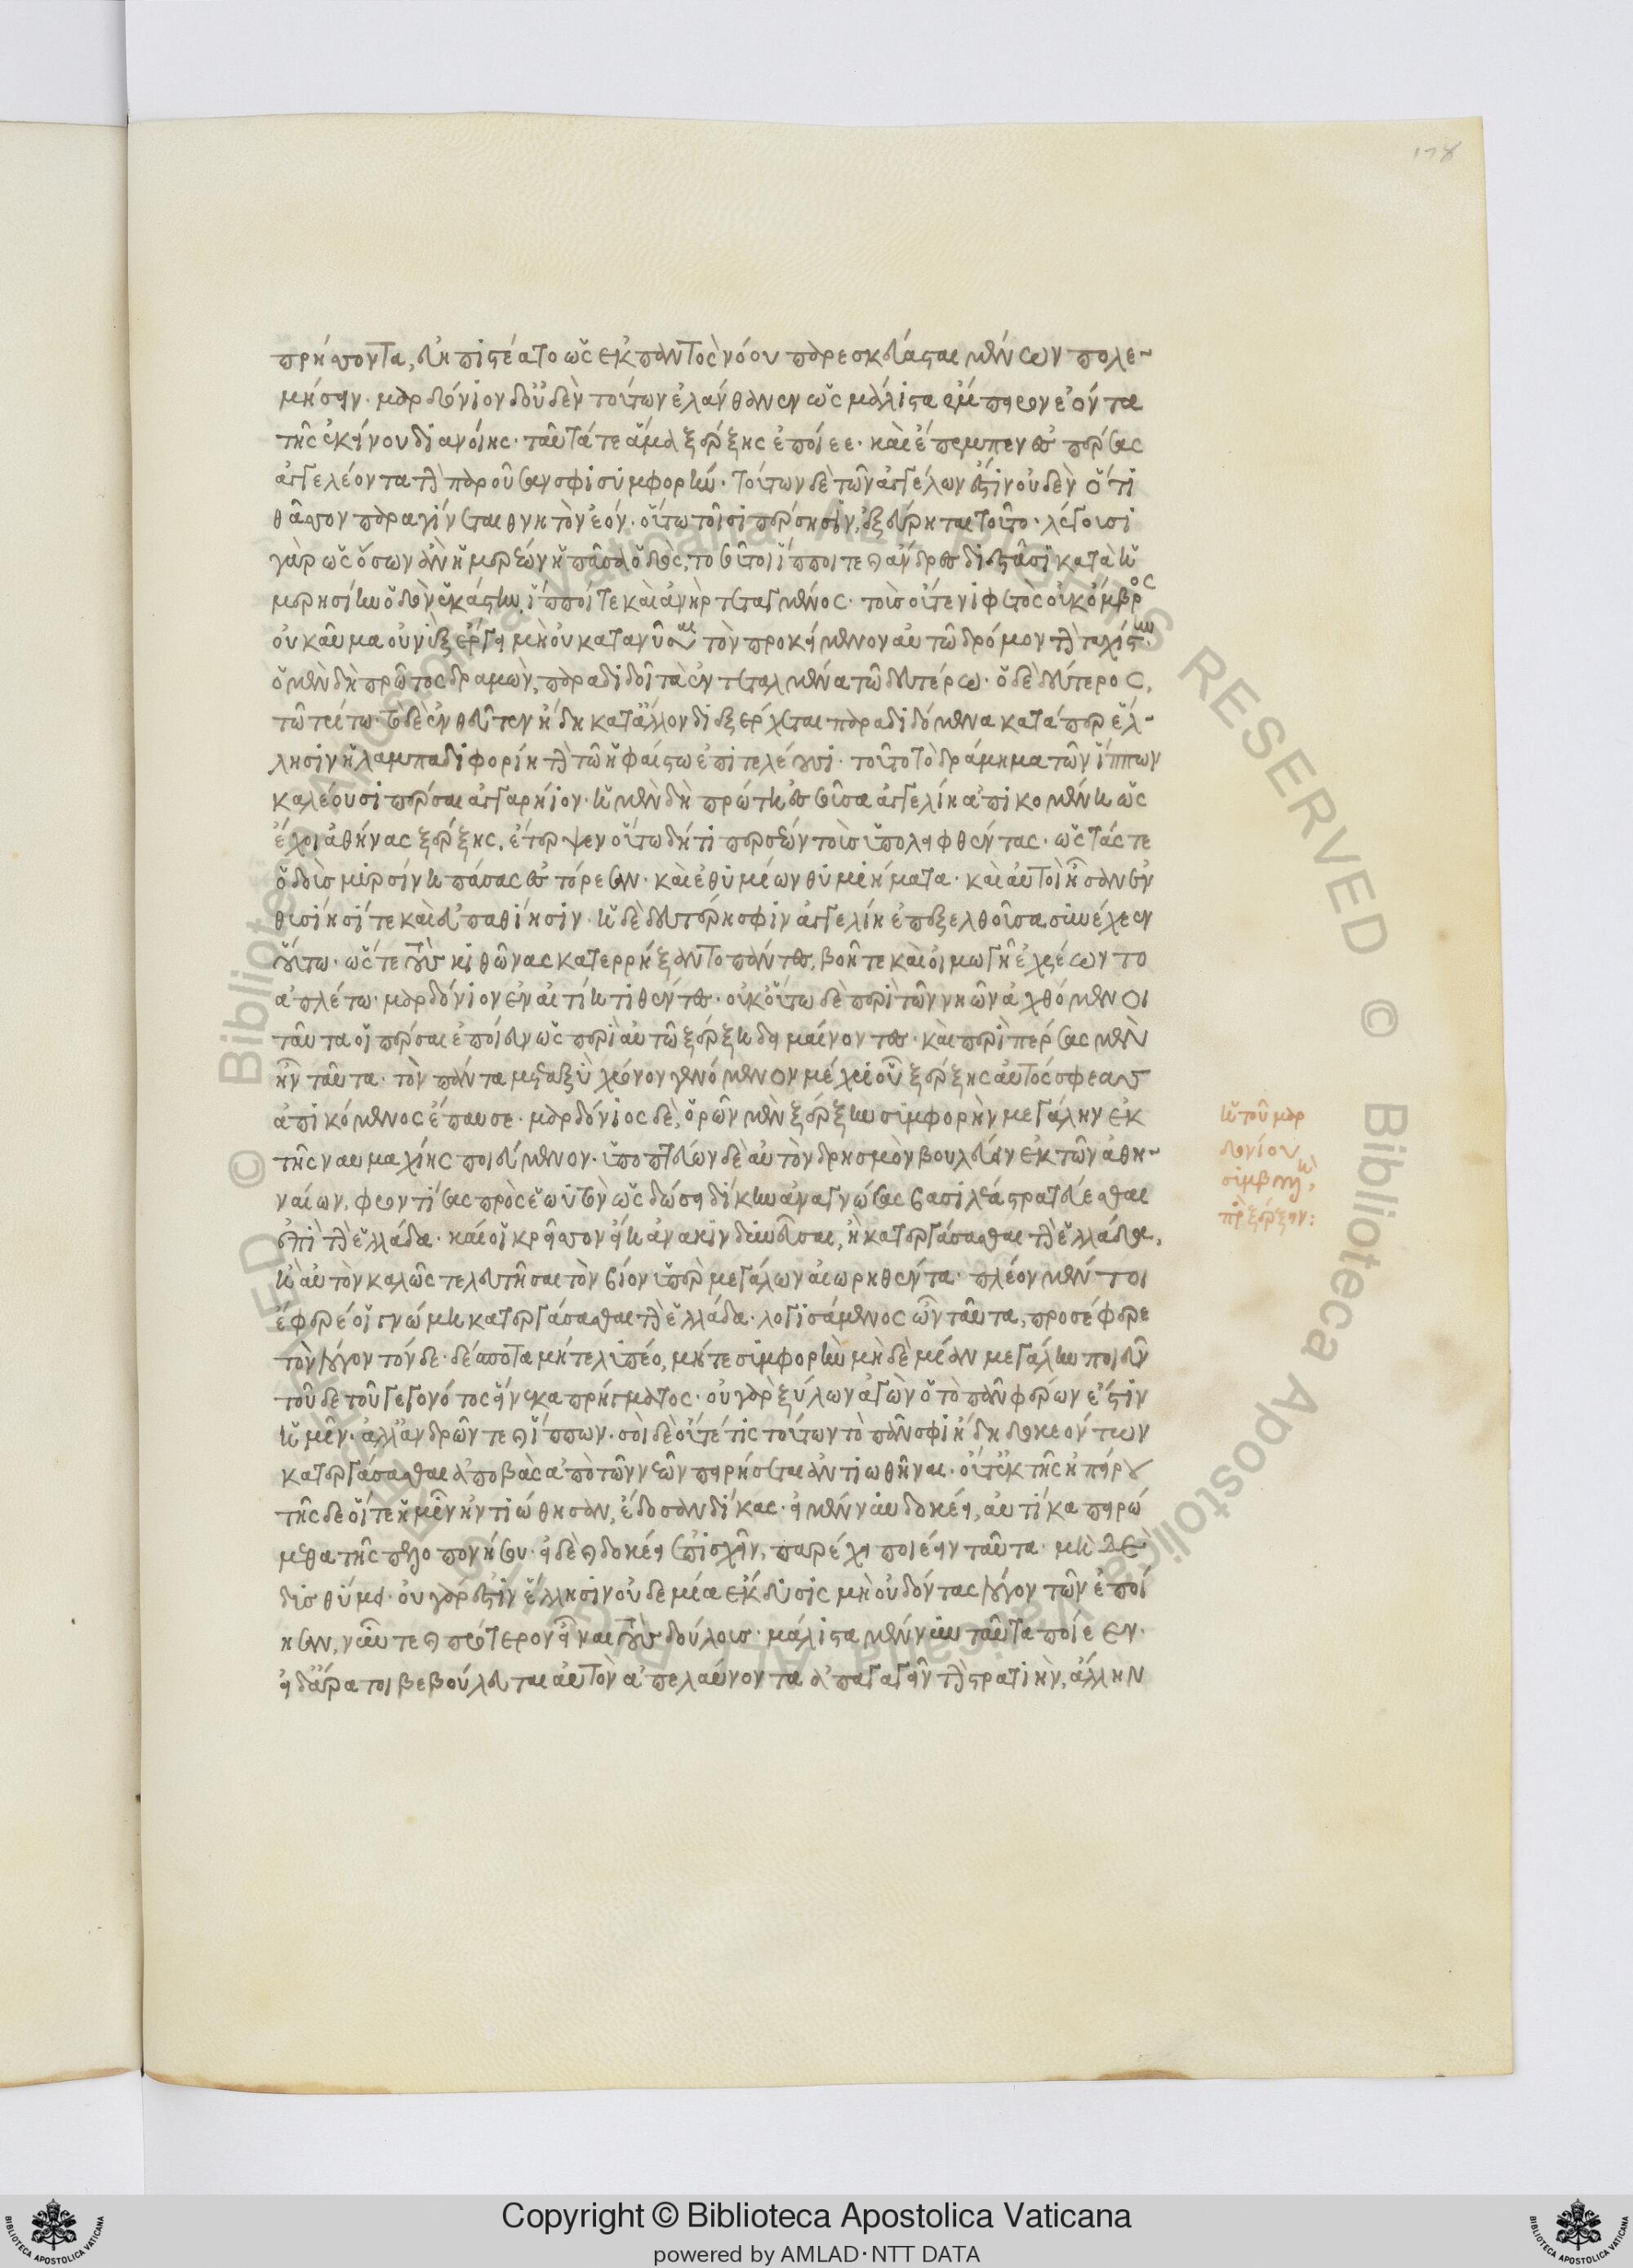 πρήσσοντα, εὖ ἠπιστέατο ὡς ἐκ παντὸς νόου παρεσκεύασται μένων πολε-
μήσειν. μαρδόνιον δ' οὐδὲν τούτων ἐλάνθανεν ὡς μάλιστα ἔμπειρον ἐόντα
τῆς ἐκείνου διανοίης. ταῦτά τε ἅμα ξέρξης ἐποίεε. καὶ ἔπεμπεν ἐς πέρσας
ἀγγελέοντα τὴν παροῦσάν σφι συμφορήν. τούτων δὲ τῶν ἀγγέλων ἔστιν οὐδὲν ὅτι
θᾶσσον παραγίνεται θνητὸν ἐόν. οὕτω τοῖσι πέρσησιν ἐξεύρηται τοῦτο. λέγουσι
γὰρ ὡς ὅσων ἂν ἡμερέων ἡ πᾶσα ὁδός, τοσοῦτοι ἵπποι τε καὶ ἄνδρες διεστᾶσι κατὰ ἡ
μερησίην ὁδὸν ἑκάστην, ἵπποί τε καὶ ἀνὴρ τεταγμένος. τοὺς οὔτε νιφετὸς οὐκ ὄμβρος
οὐ καῦμα οὐ νὺξ ἐέργει μὴ οὐ κατανῦσαι τὸν προκείμενον αὐτῷ δρόμον τὴν ταχίστην
ὁ μὲν δὴ πρῶτος δραμὼν, παραδιδοῖ τὰ ἐντεταλμένα τῷ δευτέρῳ. ὁ δὲ δεύτερος,
τῷ τρίτῳ. τὸ δὲ ἐνθεῦτεν ἤδη κατ' ἄλλον διεξέρχεται παραδιδόμενα κατά περ ἕλ-
λησιν ἡ λαμπαδηφορίη τὴν τῷ ἡφαίστῳ ἐπιτελέουσι. τοῦτο τὸ δράμημα τῶν ἵππων
καλέουσι πέρσαι ἀγγαρήιον. ἡ μὲν δὴ πρώτη ἐς σοῦσα ἀγγελίη ἀπικομένη ὡς
ἔχοι ἀθήνας ξέρξης, ἔτερψεν οὕτω δή τι περσέων τοὺς ὑπολειφθέντας. ὡς τάς τε
ὁδοὺς μυρσίνῃ πάσας ἐστόρεσαν. καὶ ἐθυμίων θυμιήματα. καὶ αὐτοὶ ἦσαν ἐν
θυσίῃσί τε καὶ εὐπαθίῃσιν. ἡ δὲ δευτέρη σφιν ἀγγελίη ἐπεξελθοῦσα, συνέχεεν
οὕτω. ὥστε τοὺς κιθῶνας κατερρήξαντο πάντες, βοῇ τε καὶ οἰμωγῇ ἐχρέωντο
ἀπλέτῳ. μαρδόνιον ἐν αἰτίῃ τιθέντες. οὐκ οὕτω δὲ περὶ τῶν νηῶν ἀχθόμενοι
ταῦτα οἱ πέρσαι ἐποίευν ὡς περὶ αὐτῷ ξέρξῃ δειμαίνοντες. καὶ περὶ πέρσας μὲν
ἦν ταῦτα. τὸν πάντα μεταξὺ χρόνον γενόμενον μέχρι οὗ ξέρξης αὐτός σφεας
ἀπικόμενος ἔπαυσε. μαρδόνιος δὲ, ὁρῶν μὲν ξέρξην συμφορὴν μεγάλην ἐκ
τῆς ναυμαχίης ποιεύμενον. ὑποπτεύων δὲ αὐτὸν δρησμὸν βουλεύειν ἐκ τῶν ἀθη-
ναίων, φροντίσας πρὸς ἑωυτὸν ὡς δώσει δίκην ἀναγνώσας βασιλέα στρατεύεσθαι
ἐπὶ τὴν ἑλλάδα. καί οἱ κρεῖσσον εἴη ἀνακινδυνεῦσαι, ἢ κατεργάσασθαι τὴν ἑλλάδα,
ἢ αὐτὸν καλῶς τελευτῆσαι τὸν βίον ὑπὲρ μεγάλων αἰωρηθέντα. πλέον μέντοι
ἔφερέ οἱ γνώμη κατεργάσασθαι τὴν ἑλλάδα. λογισάμενος ὦν ταῦτα, προσέφερε
τὸν λόγον τόνδε. δέσποτα μήτε λυπέο, μήτε συμφορὴν μηδεμίαν μεγάλην ποιεῦ
τοῦδε τοῦ γεγονότος εἵνεκα πρήγματος. οὐ γὰρ ξύλων ἀγὼν ὁ τὸ πᾶν φέρων ἐστὶν
ἡμῖν. ἀλλ' ἀνδρῶν τε καὶ ἵππων. σοὶ δὲ οὔτέ τις τούτων τὸ πᾶν σφι ἤδη δοκεόντων
κατεργάσασθαι ἀποβὰς ἀπὸ τῶν νεῶν πειρήσεται ἀντιωθῆναι. οὔτ' ἐκ τῆς ἠπείρου
τῆσδε οἵ τε ἡμῖν ἠντιώθησαν, ἔδοσαν δίκας. εἰ μέν νυν δοκέει, αὐτίκα πειρώ
μεθα τῆς πελοποννήσου. εἰ δὲ καὶ δοκέει ἐπισχεῖν, παρέχει ποιέειν ταῦτα. μὴ δὲ
δυσθύμει. οὐ γὰρ ἔστιν ἕλλησιν οὐδεμία ἔκδυσις μὴ οὐ δόντας λόγον τῶν ἐποί
ησαν, νῦν τε καὶ πρότερον εἶναι σοὺς δούλους. μάλιστα μέν νυν ταῦτα ποίεεν.
εἰ δ' ἄρα τοι βεβούλευται αὐτὸν ἀπελαύνοντα ἀπαγαγεῖν τὴν στρατιὴν, ἄλλην
ἡ τοῦ μαρ
δονίου
συμβουλὴ
πρὸς ξέρξην: